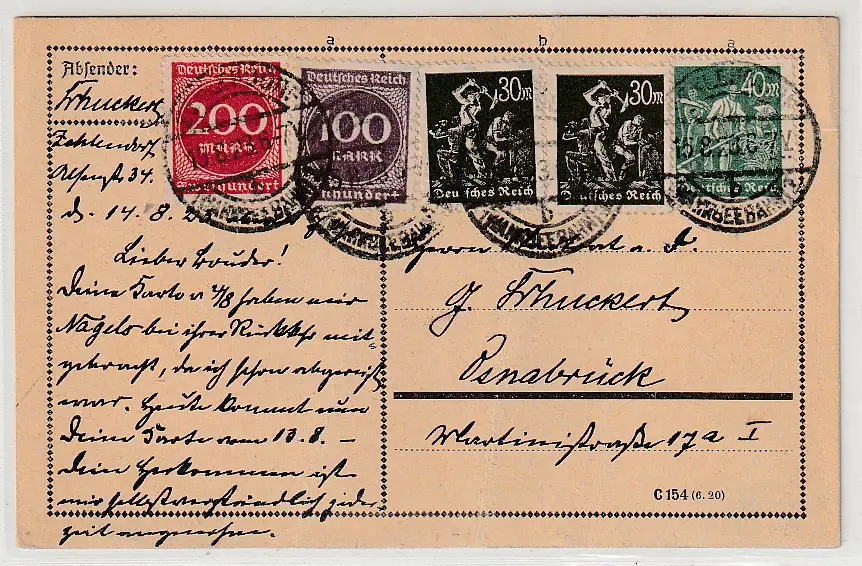 a b a
Absender:
Zehlendorf
Alsenstr 34.
d. 14.8.23
Lieber Bruder!
Deine Karte v 4/8 haben mir
Nagels bei ihrer Rückkehr mit-
gebracht, da ich schon abgereist
war. Heute kommt nun
Deine Karte vom 13.8. –
Dein Herkommen ist
mir selbstverständlich jeder
zeit angenehm.
Deutsches Reich
200
MARK
Deutsches Reich
100
MARK
30M
Deutsches Reich
30M
Deutsches Reich
40M
Deutsches Reich
(WANNSEEBAHN)
Herrn a. D.
G.
Osnabrück
Martinistraße 17a I
C 154 (6. 20)